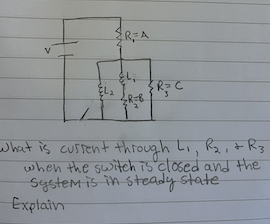 R₁=A
V
L₁
L₂
R₂=B
R₃=C
What is current through L₁, R₂, + R₃
when the switch is closed and the
system is in steady state
Explain